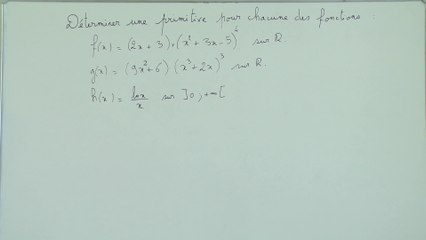 Déterminer une primitive pour chacune des fonctions :
f(x) = (2x + 3) × (x² + 3x - 5)⁴ sur ℝ.
g(x) = (9x² + 6) · (x³ + 2x)³ sur ℝ.
h(x) = ln x / x sur ]0 ; +∞[